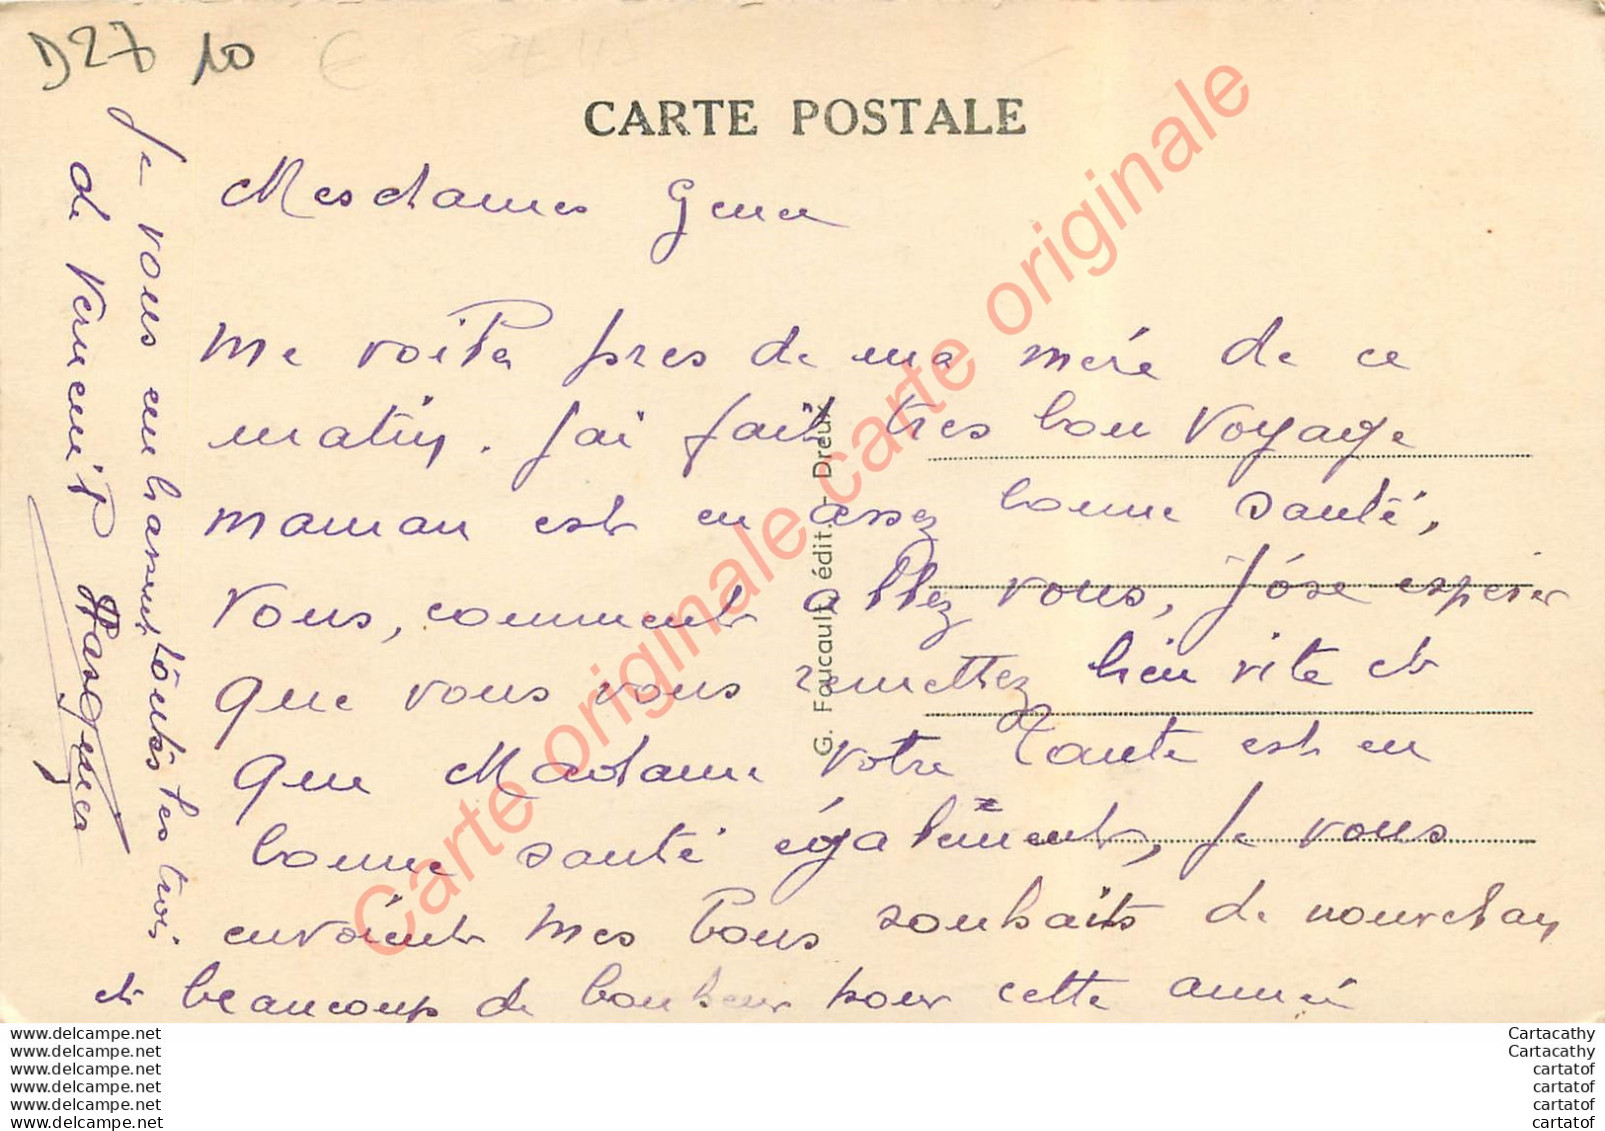 D27 10
CARTE POSTALE
Mesdames
me voila près de ma mère de ce
matin. J'ai fait tres bon voyage
maman est en assez bonne santé,
Vous, comment allez vous, J'óse espérer
que vous vous remettez bien vite et
que Madame votre Tante est en
bonne santé égalément, Je vous
envoient mes bons souhaits de nouvel an
et beaucoup de bonheur pour cette année
Je vous embrassent toutes les trois
de Verneuil
G. Foucault, édit. - Dreux
Carte originale carte originale
Carte originale carte originale
www.delcampe.net
www.delcampe.net
www.delcampe.net
www.delcampe.net
www.delcampe.net
www.delcampe.net
Cartacathy
Cartacathy
cartatof
cartatof
cartatof
cartatof